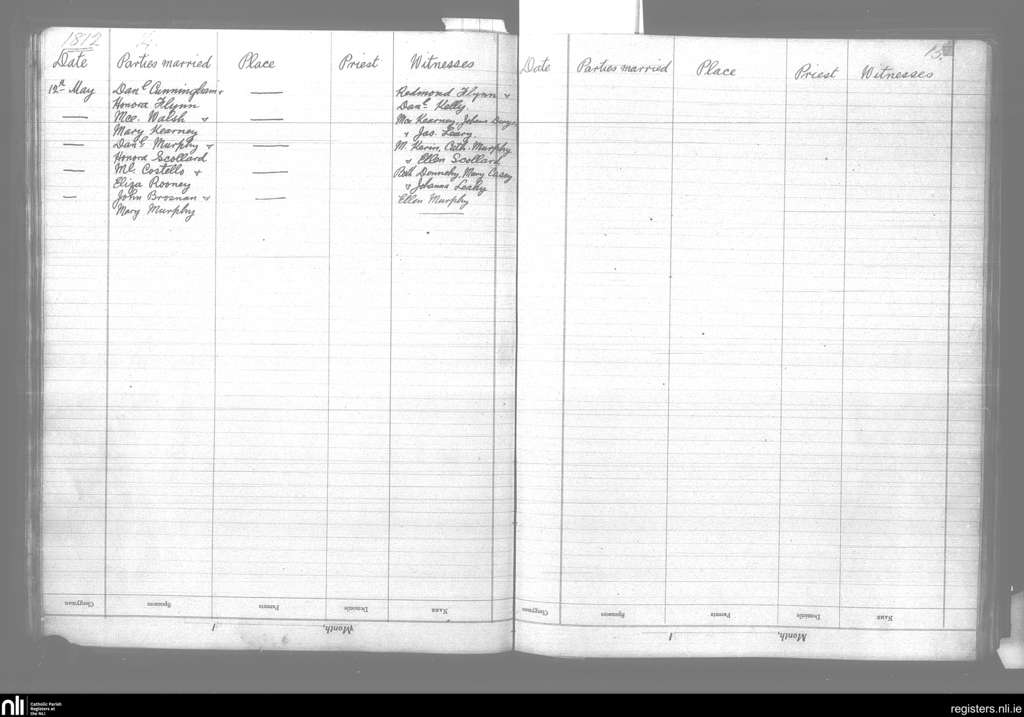 1812
Date Parties married Place Priest Witnesses
12th May Danl Cunningham & — Redmond Flynn &
Honora Flynn Danl Kelly.
— Mce. Walsh & — Kearney, Johana
Mary Kearney & Jas. Leary.
— Danl Murphy & — W. Cath. Murphy
Honora Scollard & Ellen Scollard
— Ml. Costello & — Bab Dennehy, Mary Casey
Eliza Rooney & Johanna Leahy
— John Brosnan & — Ellen Murphy
Mary Murphy
Clergyman Sponsors Parents Domicile Name
Month, 1
15.
Date Parties married Place Priest Witnesses
Clergyman Sponsors Parents Domicile Name
Month, 1
nli Catholic Parish
Registers at
the NLI
registers.nli.ie